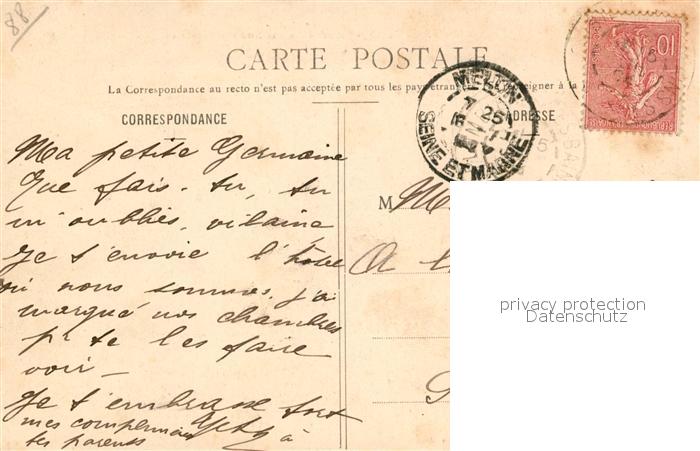 88
CARTE POSTALE
La Correspondance au recto n'est pas acceptée par tous les pays étrangers
CORRESPONDANCE
ADRESSE
10
MELUN
SEINE ET MARNE
25
Ma petite Germaine
Que fais-tu, tu
m'oublies, vilaine
Je t'envoie l'hôtel
où nous sommes, j'ai
marqué nos chambres
pr te les faire
voir —
Je t'embrasse fort
mes compliments à
tes parents
M
A
privacy protection
Datenschutz